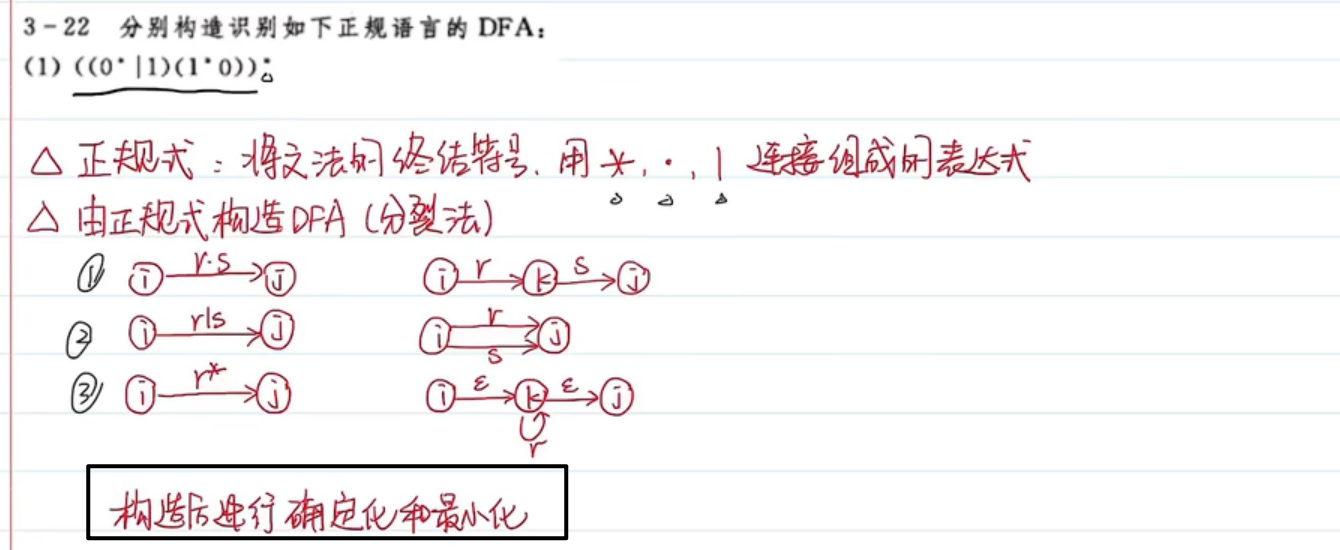 3-22 分别构造识别如下正规语言的 DFA：
(1) ((0*|1)(1*0))*
△ 正规式：将文法的终结符号.用 *, ·, | 连接组成的表达式
△ 由正规式构造DFA (分裂法)
① i r·s j i r k s j
② i r|s j i r s j
③ i r* j i ε k ε j r
构造后进行确定化和最小化